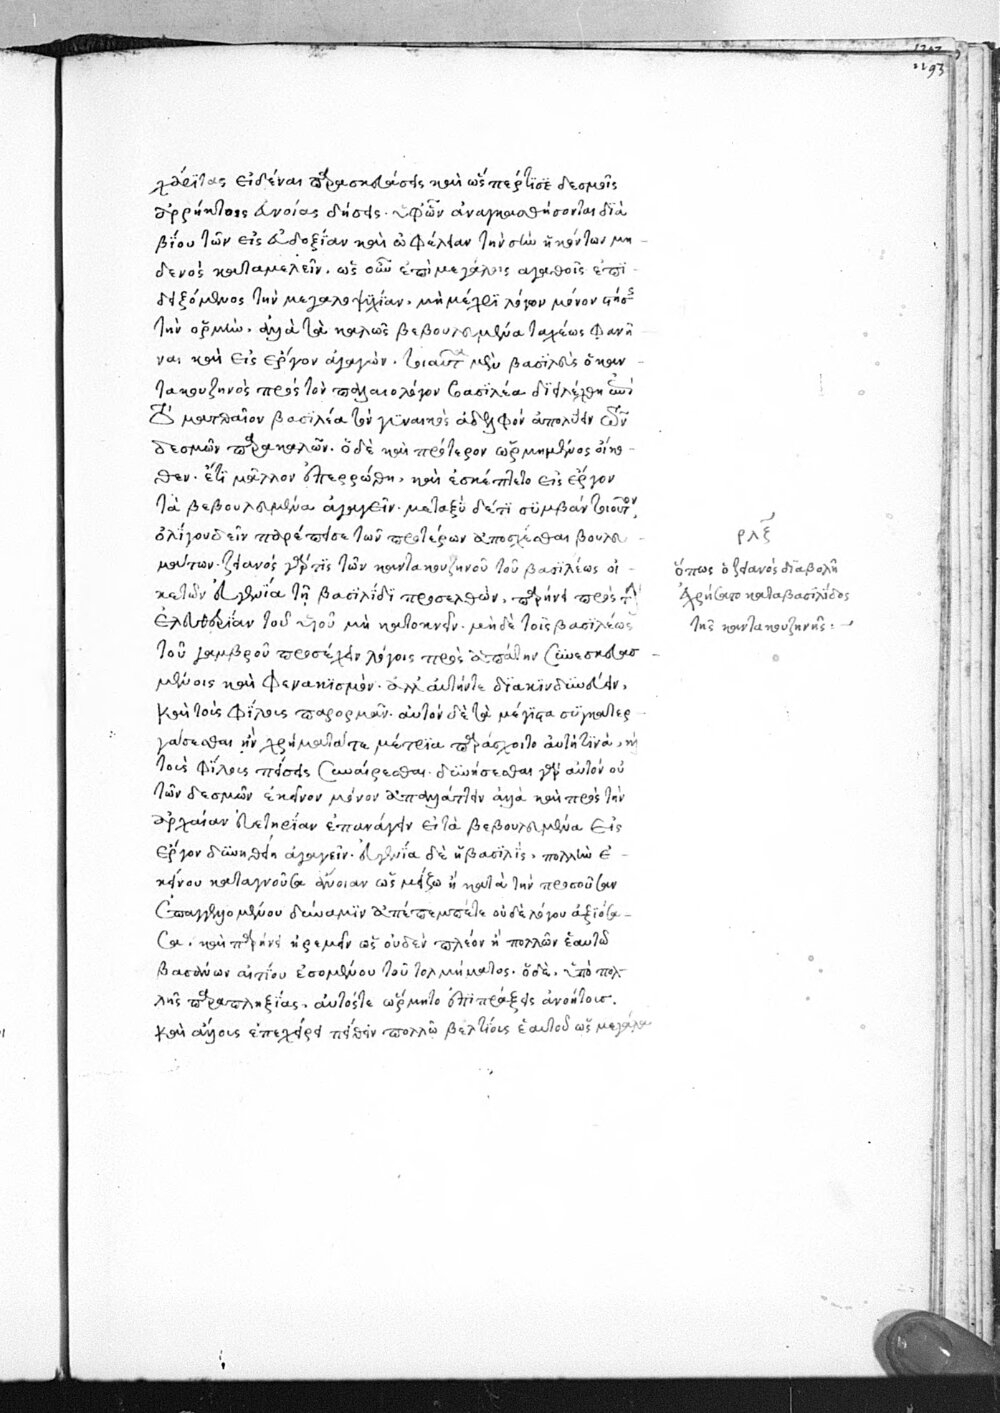 χάριτας εἰδέναι παρασκευάσεις καὶ ὥσπερ τισὶ δεσμοῖς
ἀρρήκτοις εὐνοίας δήσεις. ὑφ' ὧν ἀναγκασθήσονται διὰ
βίου τῶν εἰς εὐδοξίαν καὶ ὠφέλειαν τὴν σὴν ἡκόντων μη-
δενὸς καταμελεῖν. ὡς οὖν ἐπὶ μεγάλοις ἀγαθοῖς ἐπι-
δειξόμενος τὴν μεγαλοψυχίαν, μὴ μέχρι λόγου μόνον
τὴν ὁρμὴν, ἀλλὰ τὰ καλῶς βεβουλευμένα ταχέως φανῆ-
ναι καὶ εἰς ἔργον ἀγαγών. τοιαῦτα μὲν βασιλεὺς ὁ καν-
τακουζηνὸς πρὸς τὸν παλαιολόγον βασιλέα διειλέχθη ὑπὲρ
τοῦ ματθαῖον βασιλέα τὸν γυναικὸς ἀδελφὸν ἀπολύειν τῶν
δεσμῶν παρακαλῶν. ὁ δὲ καὶ πρότερον ὡρμημένος οἴκο-
θεν. ἔτι μᾶλλον ἐπερρώσθη, καὶ ἐσκέπτετο εἰς ἔργον
τὰ βεβουλευμένα ἀγαγεῖν. μεταξὺ δέ τι συμβὰν τοιοῦτον,
ὀλίγου δεῖν παρέπεισε τῶν προτέρων ἀποσχέσθαι βουλευ-
μάτων. ζιανὸς γάρ τις τῶν καντακουζηνοῦ τοῦ βασιλέως οἰ-
κετῶν εὐγενίᾳ τῇ βασιλίδι προσελθὼν, παρῄνει πρὸς τὴν
ἐλευθερίαν τοῦ υἱοῦ μὴ κατοκνεῖν. μηδὲ τοῖς βασιλέως
τοῦ γαμβροῦ προσέχειν λόγοις πρὸς ἀπάτην συνεσκευασ-
μένοις καὶ φενακισμόν. ἀλλ' αὐτήν τε διακινδυνεύειν,
καὶ τοὺς φίλους παρορμᾶν. αὐτὸν δὲ τὰ μέγιστα συγκατερ-
γάσεσθαι ἢν χρήματά τε μέτρια παράσχοιτο αὐτή τινὰ, καὶ
τοὺς φίλους πείσεις συναίρεσθαι. δυνήσεσθαι γὰρ αὐτὸν οὐ
τῶν δεσμῶν ἐκεῖνον μόνον ἀπαλλάττειν ἀλλὰ καὶ πρὸς τὴν
ἀρχαίαν εὐετηρίαν ἐπανάγειν εἰ τὰ βεβουλευμένα εἰς
ἔργον δυνηθείη ἀγαγεῖν. εὐγενία δὲ ἡ βασιλὶς, πολλὴν ἐ-
κείνου καταγνοῦσα ἄνοιαν ὡς μείζω ἢ κατὰ τὴν προσοῦσαν
ἐπαγγελλομένου δύναμιν ἀπέπεμπέ τε οὐδὲ λόγου ἀξιώσα-
σα, καὶ παρῄνει ἠρεμεῖν ὡς οὐδὲν πλέον ἢ πολλῶν ἑαυτῷ
βασάνων αἰτίου ἐσομένου τοῦ τολμήματος. ὁ δὲ, ὑπὸ πολ-
λῆς παραπληξίας, αὐτός τε ὥρμητο ἐπὶ πράξεις ἀνοήτους.
καὶ ἄλλους ἐπεχείρει πείθειν πολλῷ βελτίους ἑαυτοῦ ὡς μεγάλα
ρλξ
ὅπως ὁ ζιανὸς διαβολῇ
ἐχρήσατο κατὰ βασιλίδος
τῆς καντακουζηνῆς.
193